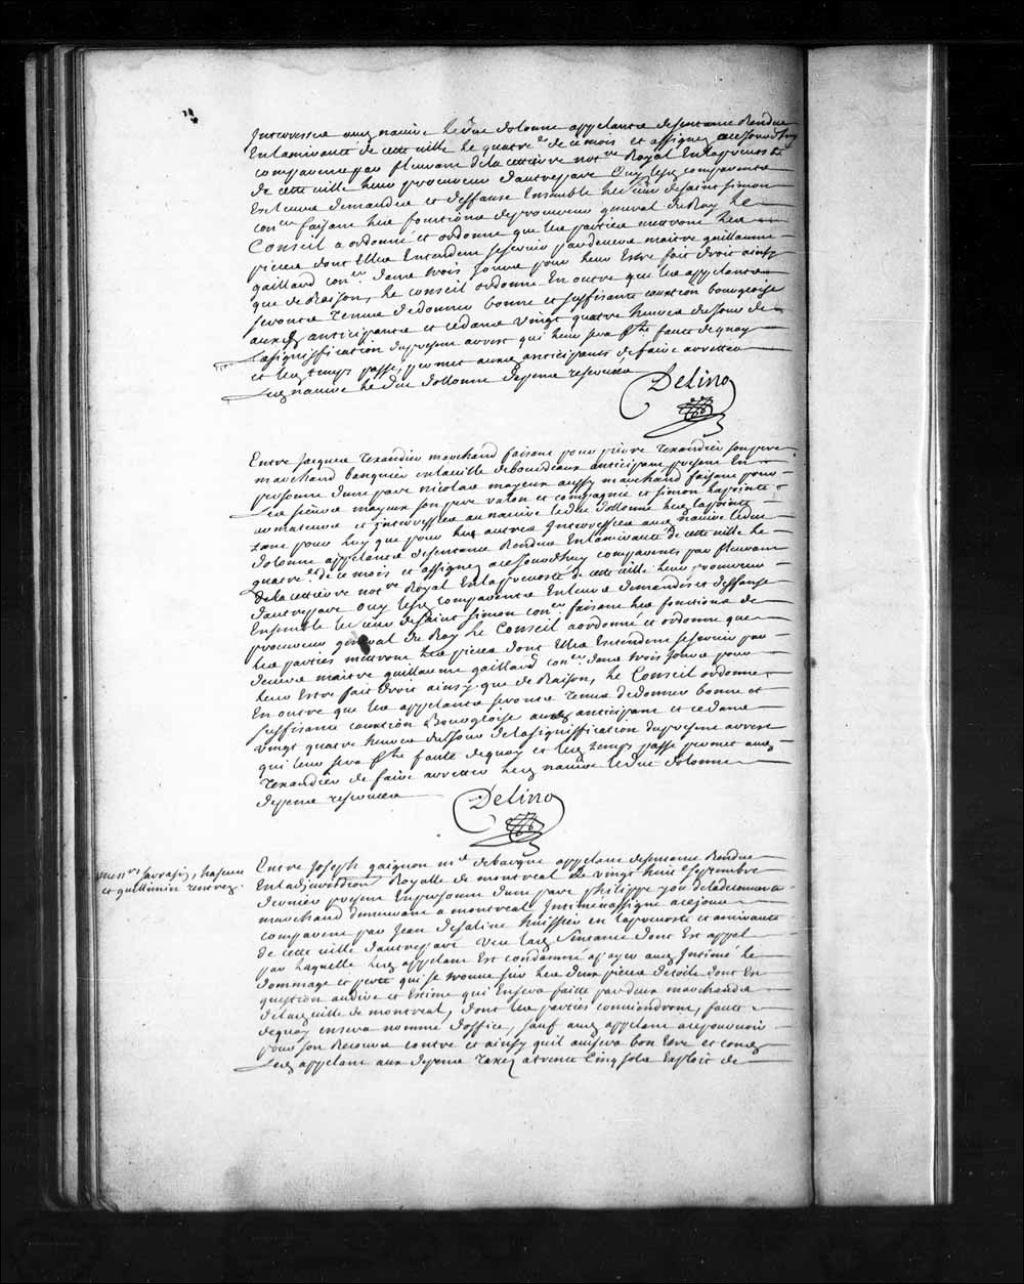 Interressez audz navire le Duc dolonne appelants de sentence Rendue
En lamirauté de cette ville le quatre de ce mois et assignez a ce Jourdhuy
comparants par fleuram de la cetiere notre Royal En la prevosté
de cette ville leur procureur dautre part Ouy lesd comparants
En leurs demandes et deffense Ensemble le sieur de saint simon
coner faisant les fonctions de procureur general du Roy Le
Conseil a ordonné et ordonne que les parties mettront les
pieces dont Elles Entendent se servir pardevers maitre guillaume
gaillard coner dans trois Jours pour leur Estre fait droit ainsy
que de Raison, le conseil ordonne En outre que les appelants
seront Tenus de donner bonne et suffisante caution bourgeoise
auxd anticipants et ce dans vingt quatre heures du Jour de
la signiffication du present arrest qui leur sera fte faute de quoy
et led temps passé, permet auxd anticipants de faire arretter
led navire le Duc dollonne depens reservez
Delino
Entre Jacques Texandier marchand faisant pour pierre Texandier son pere
marchand banquier en la ville de bourdeaux anticipant present En
personne dune part nicolas mayeux aussy marchand faisant pour
les sieurs mayeux son pere valon et compagnie et simon lapointe
armateurs et Interressez au navire le duc dollonne led lapointe
tant pour luy que pour les autres Interressez audz navire le duc
dolonne appelants de sentence Rendue En lamirauté de cette ville le
quatre de ce mois et assignez a ce Jourdhuy comparants par fleuram
de la cetiere notre Royal En la prevosté de cette ville leur procureur
dautre part ouy lesd comparants En leurs demandes et deffense
Ensemble le sieur de saint simon coner faisant les fonctions de
procureur general du Roy le Conseil a ordonné et ordonne que
les parties mettront les pieces dont Elles Entendent se servir par
devers maitre guillaume gaillard coner dans trois Jours pour
leur Estre fait droit ainsy que de Raison, le Conseil ordonne
En outre que les appelants seront Tenus de donner bonne et
suffisante caution Bourgeoise aud anticipant et ce dans
vingt quatre heures du Jour de la signiffication du present arrest
qui leur sera fte faute de quoy et led temps passé permet aud
Texandier de faire arretter led navire le Duc dolonne
depens reservez
Delino
messrs sarrasin, hascun
et guillimin retirez.
Entre Joseph gaignon md debarque appelant de sentence Rendue
En la Juridiction Royalle de montreal le vingt huit septembre
dernier present En personne dune part philippe you de la decouverte
marchand demeurant a montreal Intimé assigné a ce jour
comparant par Jean de saline huissier en la prevosté et amirauté
de cette ville dautre part Veu lad Sentence dont Est appel
par laquelle led appelant Est condamné a payer aud Intimé le
dommage et perte qui se trouve sur les deux pieces de toile dont En
question au dire et Estime qui En sera faitte par deux marchands
de lad ville de montreal, dont les parties conviendront, faute
de quoy en sera nommé doffice, sauf aud appelant a se pourvoir
pour son Recours contre et ainsy quil avisera bon Estre et condé
led appelant aux depens Taxez a trente Cinq sols Exploit de